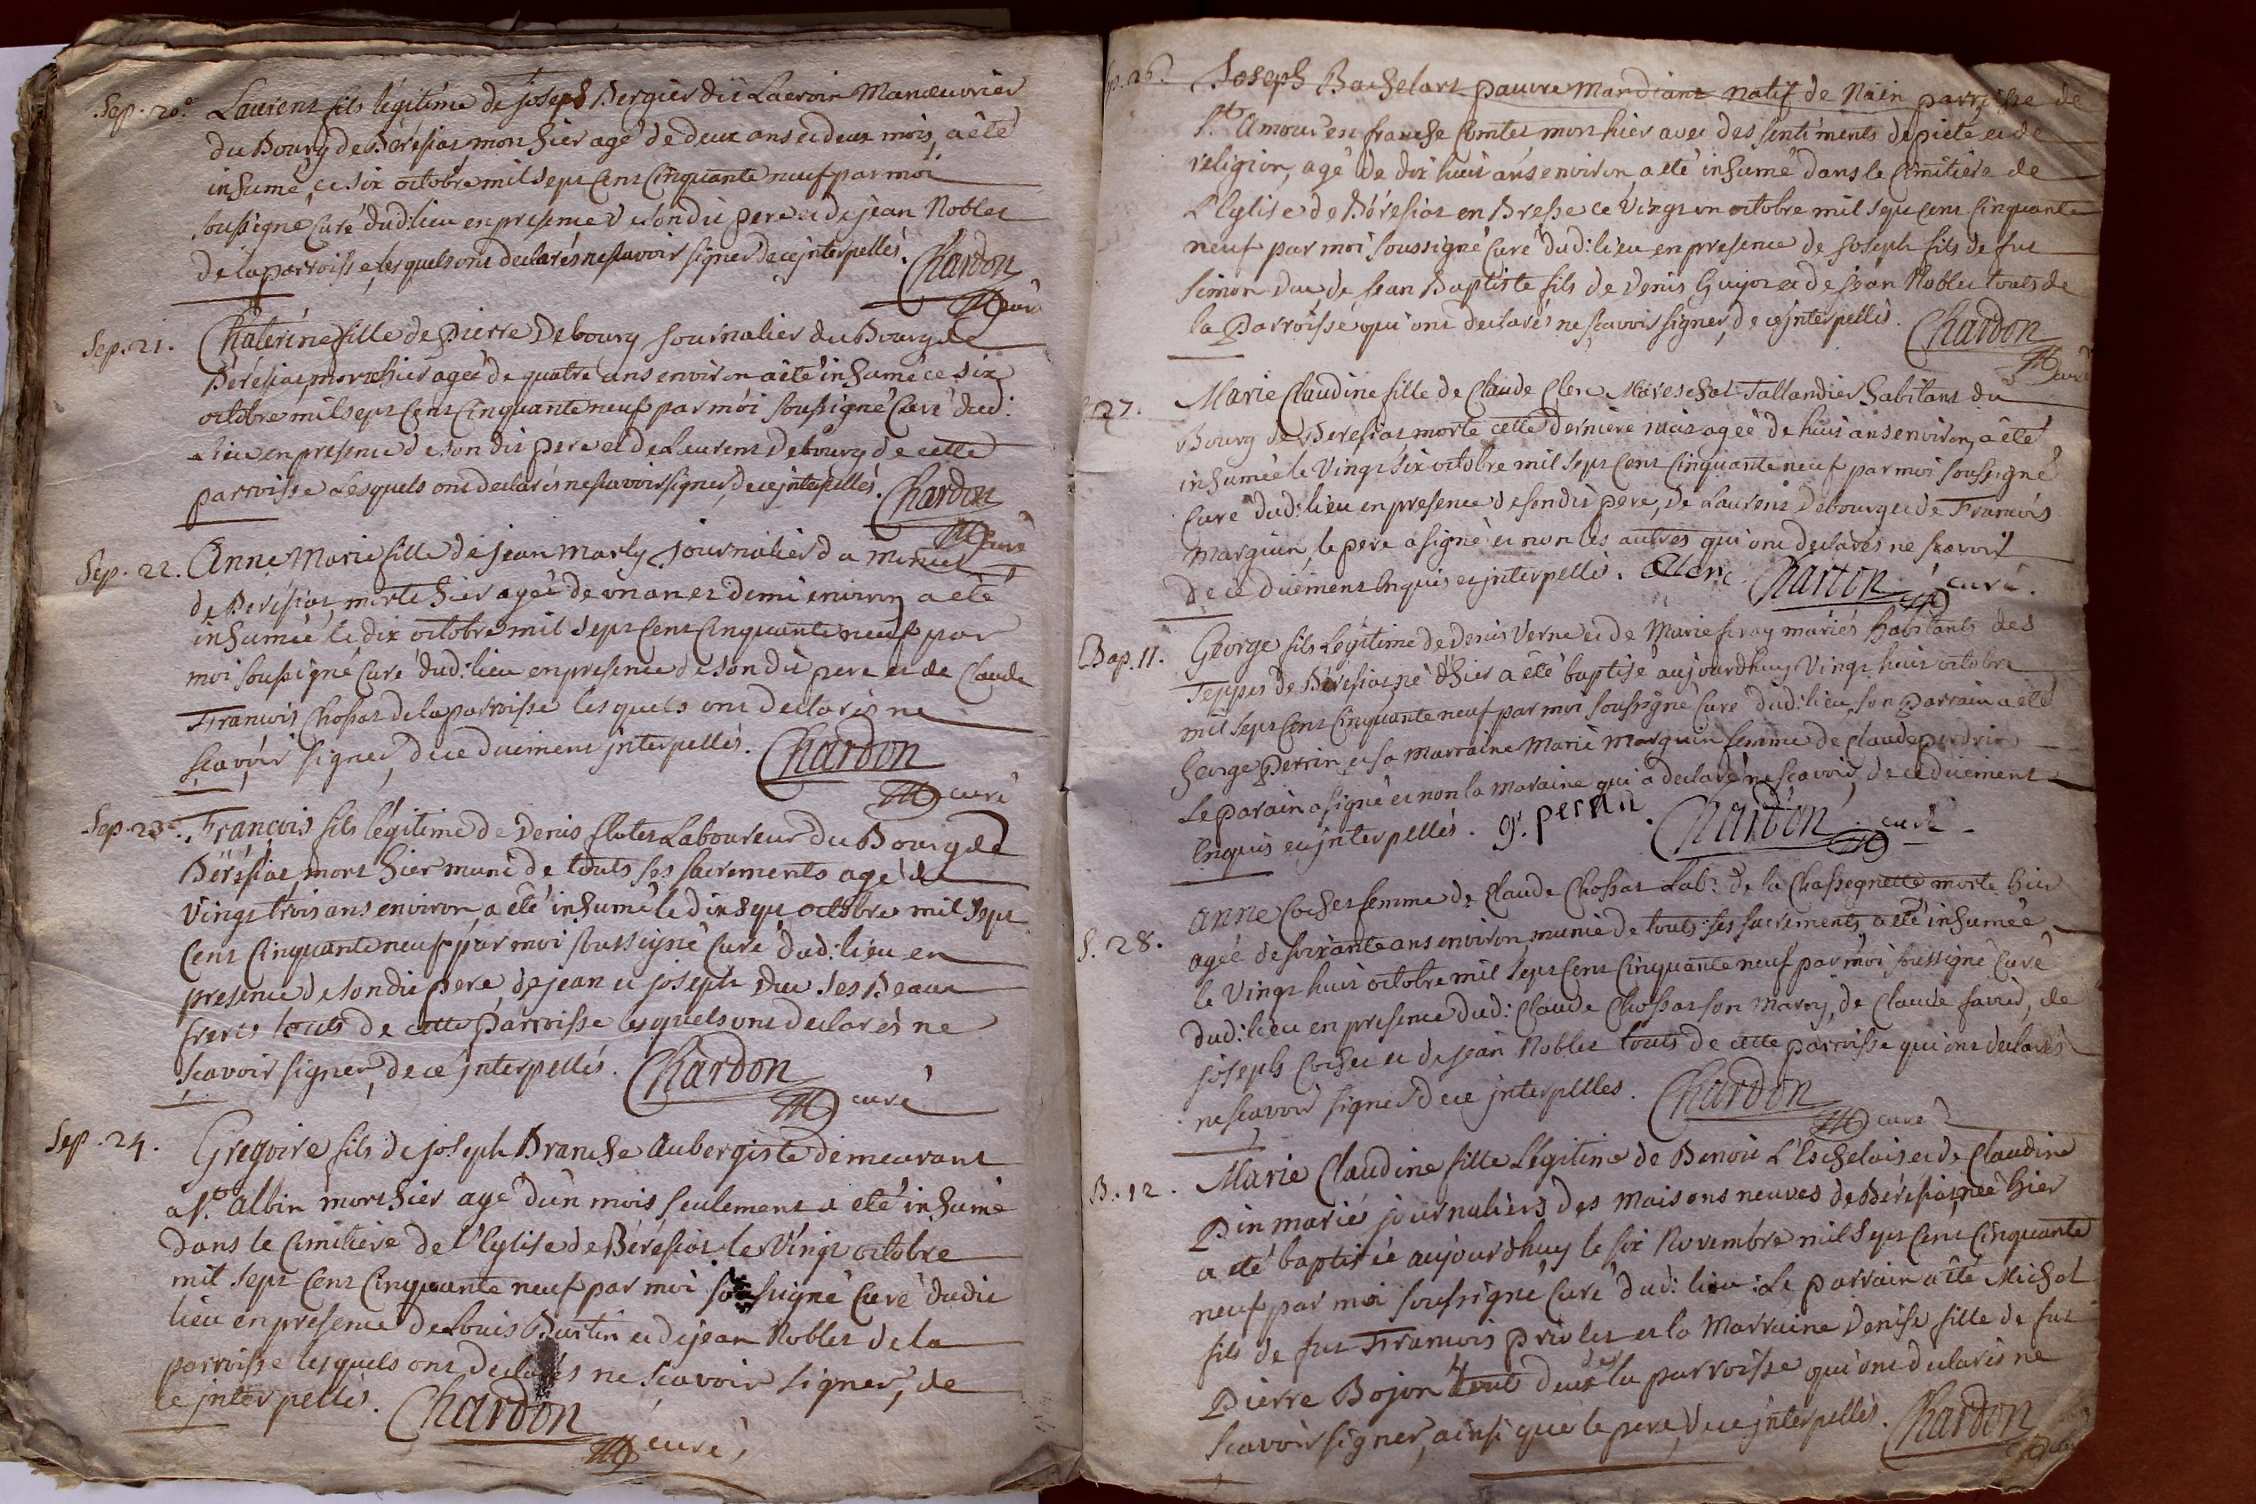 Sep. 20e. Laurent fils légitime de joseph Bergier dit Lacroix Manœuvrier
du Bourg de Bérésiat, mort hier agé de deux ans et deux mois, a été
inhumé ce six octobre mil sept Cent Cinquante neuf par moi
soussigné Curé dud: lieu en presence de son dit pere et de jean Noblet
de la parroisse, lesquels ont declarés ne scavoir signer de ce jnterpellés.
Chardon
curé
Sep. 21. Chaterine fille de pierre Debourg journalier du Bourg de
Béréziat, morte hier agée de quatre ans environ a été inhumée ce six
octobre mil sept Cent Cinquante neuf par moi soussigné Curé dud:
lieu en presence de son dit pere et de Laurent Debourg de cette
parroisse Lesquels ont declarés ne scavoir signer, de ce jnterpellés. Chardon
curé
Sep. 22. Anne Marie fille de jean Marly journalier du
de Béréfiat, morte hier agée de un an et demi environ, a été
inhumée le dix octobre mil sept Cent Cinquante neuf par
moi soussigné Curé dud: lieu en presence de son dit pere et de Claude
François Chossat de la parroisse lesquels ont declarés ne
scavoir signer, de ce duement jnterpellés. Chardon
curé
Sep. 23e. François fils légitime de Denis flutet Laboureur du Bourg de
Béréfiat, mort hier muni de touts ses sacrements agé de
Vingt trois ans environ, a été inhumé le dix sept octobre mil sept
Cent Cinquante neuf par moi soussigné Curé dud: lieu en
presence de son dit pere, de jean et joseph Duc ses Beaux
freres touts de cette Parroisse lesquels ont declarés ne
scavoir signer, de ce jnterpellés. Chardon
curé
Sep. 24. Gregoire fils de joseph Branche Aubergiste demeurant
a St. Albin mort hier agé d'un mois seulement a été inhumé
dans le Cimitiere de l'Eglise de Béréfiat le Vingt octobre
mil sept Cent Cinquante neuf par moi soussigné Curé dudit
lieu en presence de Louis Burtin et de jean Noblet de la
parroisse lesquels ont declarés ne scavoir signer, de
ce jnterpellés. Chardon
curé
p. 26. Joseph Bachelart pauvre Mandiant natif de Nain parroisse de
St. Amour en franche Comtet mort hier avec des sentiments de pieté et de
religion, agé de dix huit ans environ a été inhumé dans le Cimitiere de
L'Eglise de Béréfiat en Bresse ce Vingt un octobre mil sept Cent Cinquante
neuf par moi soussigné Curé dud: lieu en presence de joseph fils de fut
Simon Duc, de jean Baptiste fils de Denis Guyot et de jean Noblet touts de
la Parroisse qui ont declarés ne scavoir signer, de ce jnterpellés. Chardon
curé
27. Marie Claudine fille de Claude Clerc Mareschal Tallandier habitant du
Bourg de Béréfiat morte cette derniere nuit agée de huit ans environ, a été
inhumée le Vingt six octobre mil sept Cent Cinquante neuf par moi soussigné
Curé dud: lieu en presence de son dit pere, de Laurent Debourg et de François
Marguin, le pere a signé et non les autres qui ont declarés ne scavoir
de ce duement Enquis et jnterpellés. Clerc Chardon curé.
Bap. 11. George fils Legitime de Denis Verne et de Marie mariés habitants des
Teppes de Béréfiat né d'hier a été baptisé aujourdhuy Vingt huit octobre
mil sept Cent Cinquante neuf par moi soussigné Curé dud: lieu, son Parrain a été
George Perrin, et sa Marraine Marie Marguin femme de Claude perdrix
Le parain a signé et non la maraine qui a declaré ne scavoir, de ce duement
Enquis et jnterpellés. g. perrin. Chardon curé
S. 28. Anne Cochet femme de Claude Chossat Lab: de la Chassagnette morte hier
agée de soixante ans environ, munie de touts ses sacrements, a été inhumée
le Vingt huit octobre mil sept Cent Cinquante neuf par moi soussigné Curé
dud: lieu en presence dud: Claude Chossat son mary, de Claude favier, de
joseph Cochet et de jean Noblet touts de cette parroisse qui ont declarés
ne scavoir signer de ce jnterpelles. Chardon
curé
B. 12. Marie Claudine fille Légitime de Benoit L'Eschelois et de Claudine
Pin mariés journaliers des Maisons neuves de Béréfiat, née hier
a été baptisée aujourdhuy le six Novembre mil sept Cent Cinquante
neuf par moi soussigné Curé dud: lieu: Le parrain a été Michel
fils de fut François priolet et la Marraine Denise fille de fut
Pierre Bojon tout deux de la parroisse qui ont declarés ne
scavoir signer, ainsi que le pere, de ce jnterpellés. Chardon